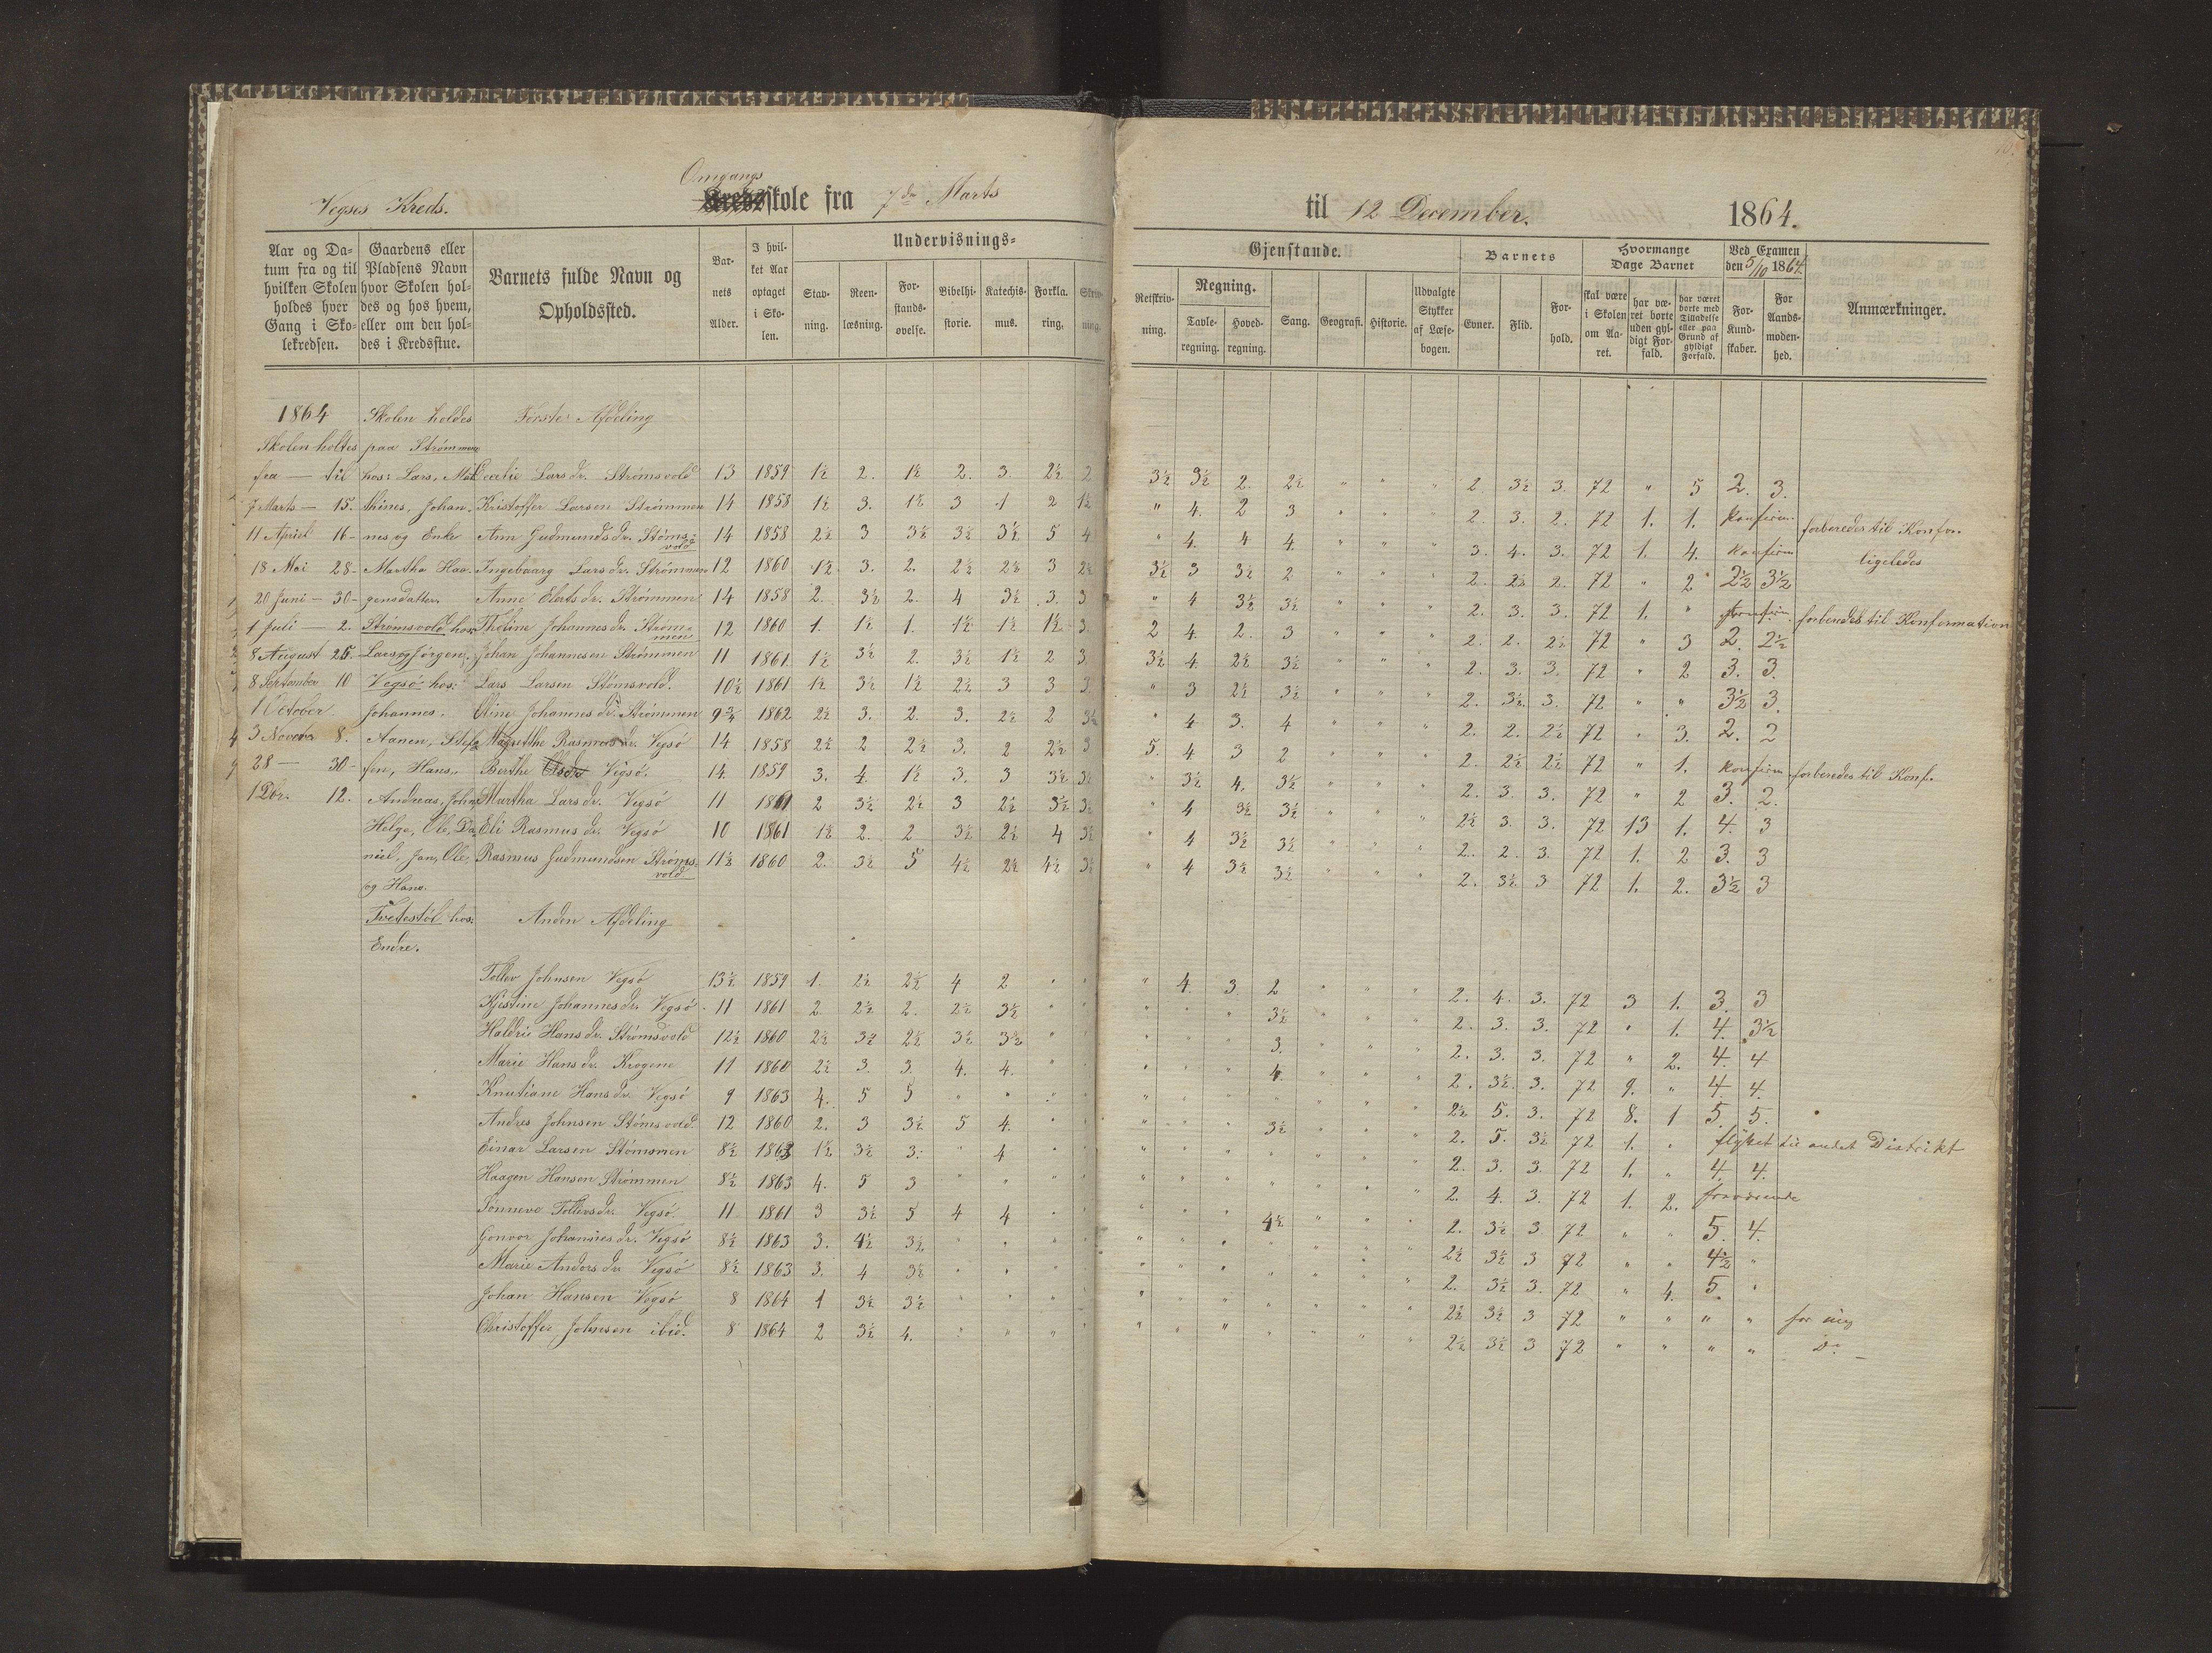 Vegsøs Kreds.
Omgangs
Kredsskole fra 7de Marts
til 12 December. 1864.
Aar og Da-tum fra og til hvilken Skolen holdes hver Gang i Sko-lekredsen. | Gaardens eller Pladsens Navn hvor Skolen hol-des og hos hvem, eller om den hol-des i Kredsstue. | Barnets fulde Navn og Opholdssted. | Bar-nets Alder. | I hvil-ket Aar optaget i Sko-len. | Undervisnings-
Stav-ning. | Reen-læsning. | For-stands-øvelse. | Bibelhi-storie. | Katechis-mus. | Forkla-ring. | Skriv-ning.
Gjenstande. | Barnets | Hvormange Dage Barnet | Ved Examen den 5/10 1864. | Anmærkninger.
Retskriv-ning. | Regning. | Tavle-regning. | Hoved-regning. | Sang. | Geografi. | Historie. | Udvalgte Stykker af Læse-bogen. | Evner. | Flid. | For-hold. | skal være i Skolen om Aa-ret. | har væ-ret borte uden gyl-digt For-fald. | har været borte med Tilladelse eller paa Grund af gyldigt Forfald. | For Kund-skaber. | For Aands-moden-hed.
1864 Skolen holdes Første Afdeling
Skolen holtes paa Strømmen
fra — til hos: Lars, Mat Cecilie Larsdr. Strømsvold 13 1859 1½ 2. 1½ 2. 3. 2½ 2 3½ 3½ 2. 2½ " " " 2. 3½ 3. 72 " 5 2. 3.
7 Marts — 15. hines, Johan- Kristoffer Larsen Strømmen 14 1858 1½ 3. 1½ 3 1 2 1½ " 4. 2 3 " " " 2. 3. 2. 72 1. 1. Konfirm. forberedes til Konfor.
11 April 16 - nes og Enke Ann Gudmundsdr. Stømsvold 14 1858 2½ 3 3½ 3½ 3½ 5 4 " 4. 4 4. " " " 3. 4. 3. 72 1. 4. Konfirm ligeledes
18 Mai 28 - Martha Haa- Ingebaarg Larsdr. Strømmen 12 1860 1½ 3. 2. 2½ 2½ 3 2½ 3½ 3 3½ 2 " " " 2. 2½ 2. 72 " 2 2½ 3½
20 Juni — 30 - gensdatter. Anne Elertsdr. Strømmen 14 1858 2. 3½ 2. 4 3½ 3. 3 " 4 3½ 3½ " " " 2. 3. 3. 72 1. " Konfirm. forberedes til Konformation
1 Juli — 2. Strømsvold hos Tholine Johannesdr. Strømmen 12 1860 1. 1½ 1. 1½ 1½ 1½ 3. 2 4. 2. 3 " " " 2. 2. 2½ 72 " 3 2. 2½
8 August 25. Lars og Jørgen. Johan Johannesen Strømmen 11 1861 1½ 3½ 2. 3½ 1½ 2 3 3½ 4. 2½ 3½ " " " 2. 3. 3. 72 " 2 3. 3.
8 September 10 Vegsö hos: Lars Larsen Stømsvold. 10½ 1861 1½ 3½ 1½ 2½ 3 3 3 " 3 2½ 3½ " " " 2. 3½. 3. 72 " " 3½ 3.
1 October Johannes. Oline Johannesdr. Strømmen 9¾ 1862 2½ 3. 2. 3. 2½ 2 3½ " 4 3. 4 " " " 2. 2. 2½ 72 " 3. 2. 2
3 Novbr 8. Aanen, Stef- Magrethe Rasmusdr. Vegsö 14 1858 2½ 2 2½ 3. 2 2½ 3 5. 4 3 2 " " " 2. 2½ 2½ 72 " 1. Konfirm forberedes til Konf.
28 — 30 - fen, Hans, Berthe Olsdr Vegsö. 14. 1859 3. 4. 1½ 3. 3 3½ 3½ " 3½ 4. 3½ " " " 2. 3. 3. 72 " 2 3. 2.
1 Dbr. 12. Andreas, John Martha Larsdr. Vegsö 11 1861 2 3½ 2½ 3 2½ 3½ 3½ " 4 3½ 3½ " " " 2½ 3. 3. 72 13 1. 4. 3
Helge, Ole, Da- Eli Rasmusdr. Vegsö 10 1861 1½ 2. 2 3½ 2½ 4 3½ " 4 3½ 3½ " " " 2. 2. 3. 72 1. 2 3. 3
niel, Jan, Ole, Rasmus Gudmundsen Strømsvold 11½ 1860 2. 3½ 5 4½ 2½ 4½ 3½ " 4 3½ 3½ " " " 2. 3½ 3 72 1. 2. 3½ 3
og Hans.
Tvetestöl hos: Anden Afdeling
Endre.
Tollev Johnsen Vegsö 13½ 1859 1. 2½ 2½ 4 2 " " " 4. 3. 2 " " " 2. 4. 3. 72 3 1. 3. 3
Kjestine Johannesdr. Vegsö 11 1861 2. 2½ 2. 2½ 3½ " " " " " 3½ " " " 2. 3. 3. 72 " 1. 4. 3½
Haldris Hansdr. Strømsvold 12½ 1860 2½ 3½ 2½ 3½ 3½ " " " " " 3. " " " 2. 3. 3. 72 " 2. 4. 4
Marie Hansdr. Krogene 11 1860 2½ 3. 3. 4. 4. " " " " " 4. " " " 2. 3½. 3. 72 9. " 4. 4.
Knutiane Hansdr. Vegsö 9 1863 4. 5 5 " " " " " " " " " " " 2½ 5. 3. 72 8. 1 5. 5.
Andres Johnsen Stømsvold. 12 1860 2. 3 3½ 5 4. " " " " " 3½ " " " 2. 5. 3½ 72 1. " flyttet til andet Distrikt
Einar Larsen Stømmen 8½ 1863 1½ 3½ 3. " 4 " " " " " " " " " 2. 3. 3. 72 1. " 4. 4.
Haagen Hansen Strømmen 8½ 1863 4. 5 3 " " " " " " " " " " " 2. 4. 3. 72 1. 2. fraværende
Sønneve Tollevsdr. Vegsö. 11 1861 3 3½ 5 4 4 " " " " " 4½ " " " 2. 3½ 3 72 " " 5. 4.
Gonvor Johannesdr. Vegsö 8½ 1863 3. 4½ 3½ " " " " " " " " " " " 2½ 3½ 3 72 " " 4½ "
Marie Andersdr Vegsö 8½ 1863 3. 4 3½ " " " " " " " " " " " 2. 3½ 3. 72 " 4. 5. "
Johan Hansen Vegsö 8 1864 1 3½ 3½ " " " " " " " " " " " 2½ 3½ 3 72 " " " " for ung
Christoffer Johnsen ibid. 8 1864 2 3½ 4. " " " " " " " " " " " 2½ 3½ 3 72 " " " " Do